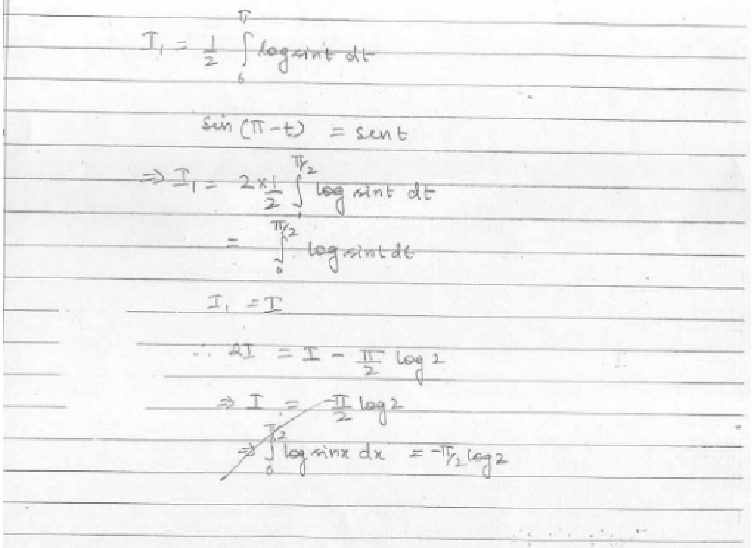 I₁ = 1/2 ∫₀^π log sint dt
sin (π - t) = sint
⇒ I₁ = 2×1/2 ∫₀^π/2 log sint dt
= ∫₀^π/2 log sint dt
I₁ = I
∴ 2I = I - π/2 log 2
⇒ I = -π/2 log 2
⇒ ∫₀^π/2 log sinx dx = -π/2 log 2